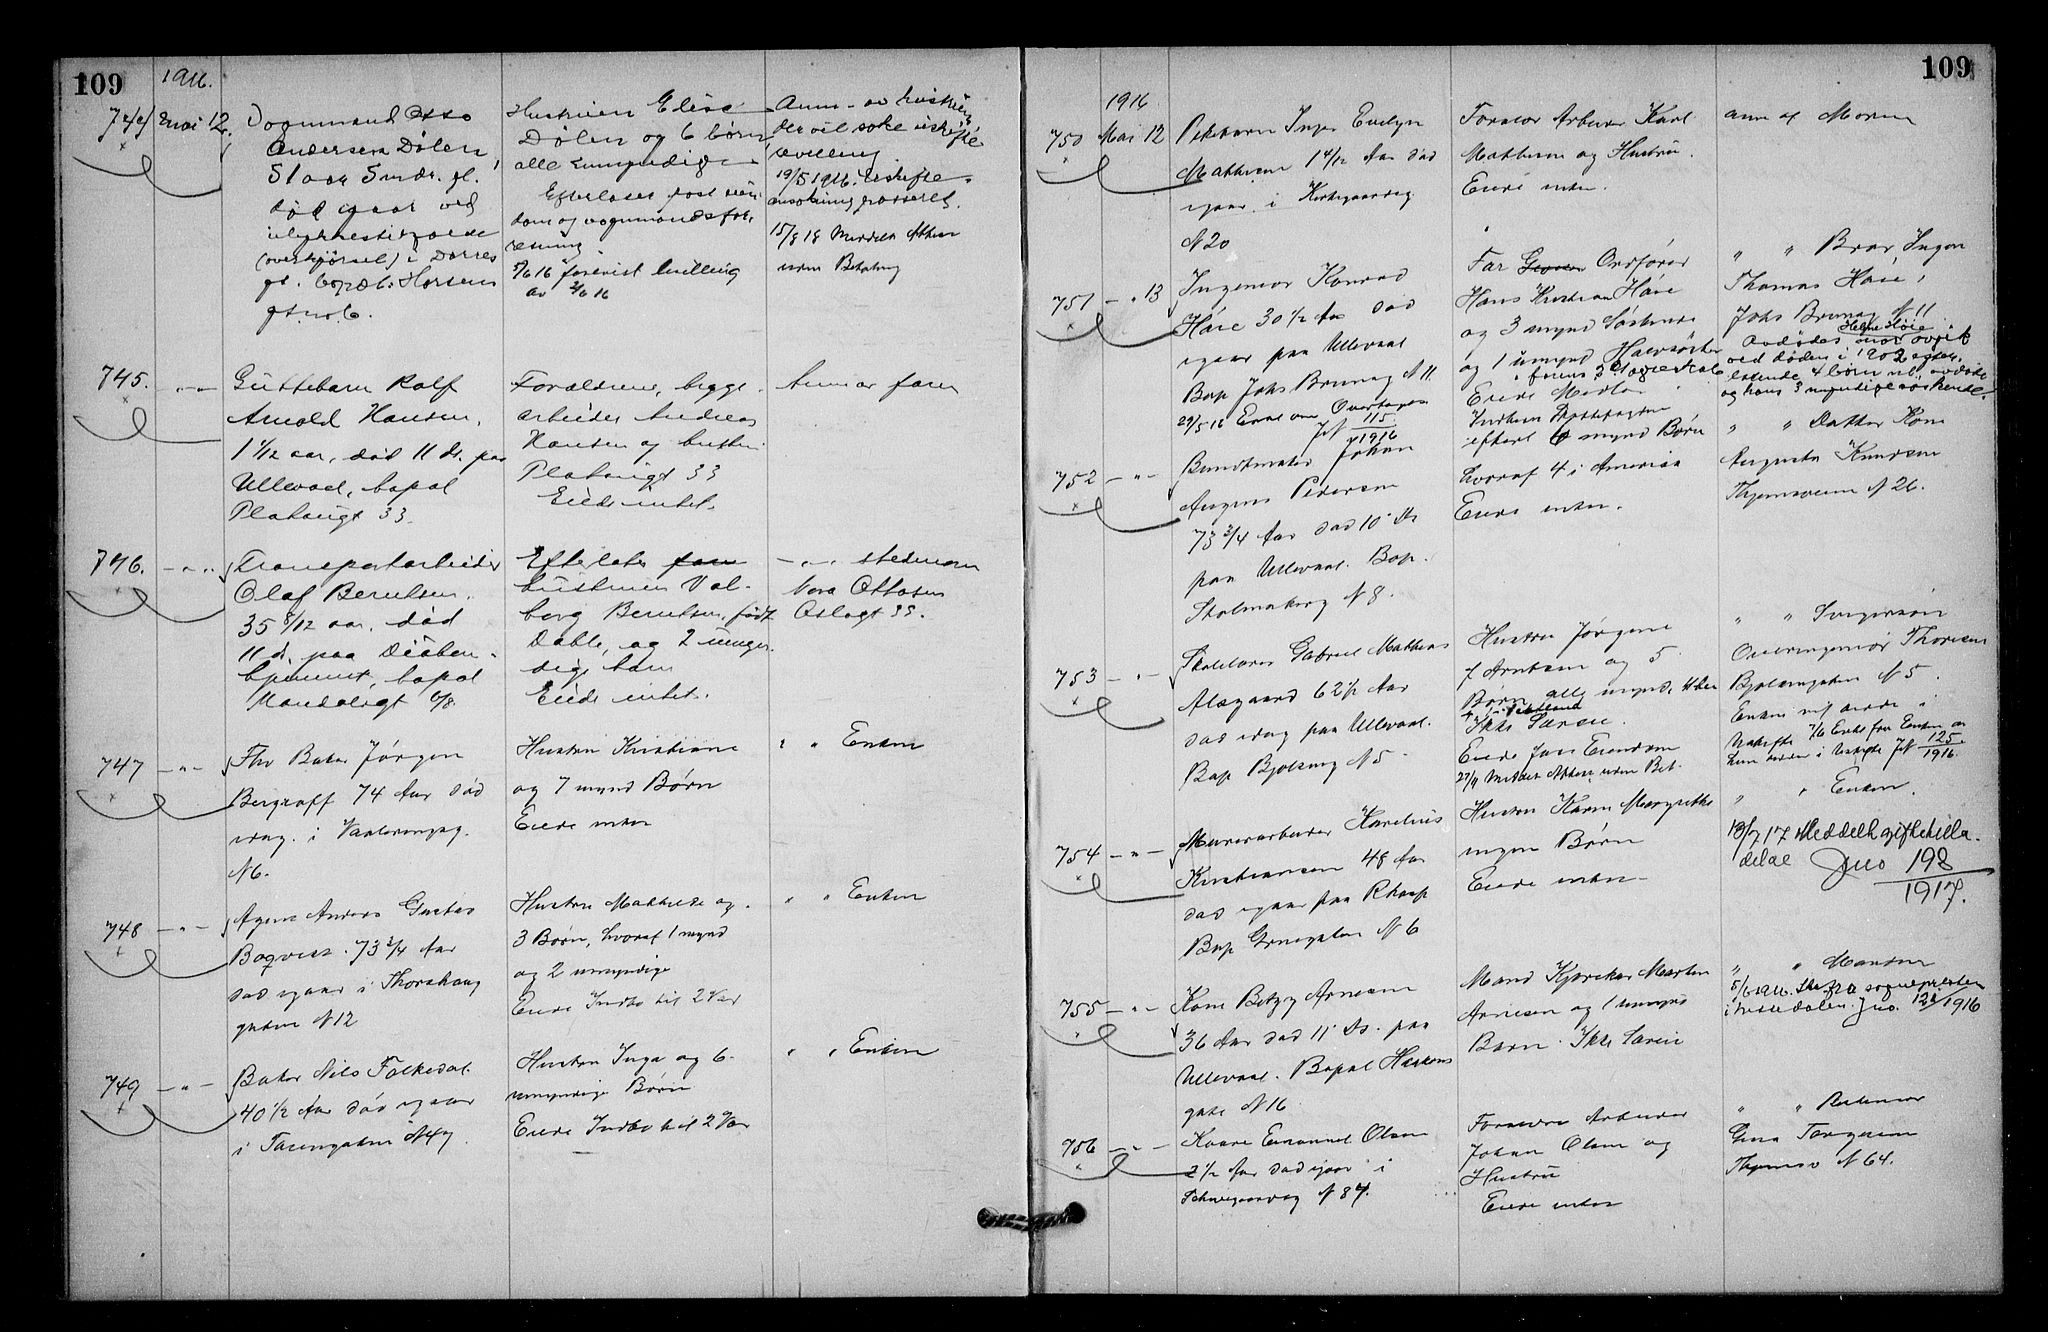 109
1916.
744 Mai 12.
Vognmand Otto
Andersen Dølen,
51 aar 5 mdr. gl.
død igaar ved
ulykkestilfælde
(overkjørsel) i Darres
gt. bopæl: Horsens
gt no 6.
Hustruen Elise
Dølen og 6 børn
alle umyndige
Efterlater fast eien
dom og vognmandsfor
retning
5/6 16 forevist kvittering
av 2/6 16
Anm. av hustruen,
der vil søke uskifte
bevilling
19/5 1916. Uskifte
ansøkning passeret.
15/8 18 Meddelt Attest
uden Betaling
745. - " -
Guttebarn Rolf
Arnold Hansen,
1 1/12 aar, død 11 ds. paa
Ullevaal, bopæl
Platougt 33.
Forældrene, begge
arbeider Andreas
Hansen og hustru
Platougt 33
Eiede intet.
Anm av faren
746. - " -
Transportarbeider
Olaf Berntsen.
35 8/12 aar, død
11 ds. paa Diakon
hjemmet, bopæl
Mandalsgt 6/8
Efterlater
hustruen Val-
borg Berntsen, født
Dahle, og 2 umyn
dige barn
Eiede intet.
- " - stedmoren
Nora Ottosen
Oslogt 33.
747 - " -
Fhv Baker Jørgen
Bergraff 74 Aar død
idag. i Vaalerenggg.
N 6.
Hustru Kristiane
og 7 mynd Børn
Eiede intet
" " Enken
748 - " -
Agent Anders Gustav
Boqvist. 73 3/4 Aar
død igaar i Thorshaug
gaten N 12
Hustru Mathilde og
3 Børn, hvoraf 1 mynd
og 2 umyndige
Eiede Indbo til 2 Vær
" " Enken
749 - " -
Baker Nils Folkedal
40 1/2 Aar død igaar
i Tarengaten N 47.
Hustru Inga og 6
umyndige Børn
Eiede Indbo til 2 Vær
" " Enken
109
1916
750 Mai 12
Pikebarn Inger Evelyn
Mathisen 1 4/12 Aar død
igaar i Kirkegaardsg
N 20
Forældre Arbeider Karl
Mathisen og Hustru.
Eiede intet.
anm af Moren
751 - " 13
Ingeniør Konrad
Høie 30 1/2 Aar død
igaar paa Ullevaal
Bop Johs Brunsg N 11.
29/5 16 Erkl om Overtagen
JN 115/1916
Far Ordfører
Hans Kristian Høie
og 3 mynd Søskende
og 1 umynd Halvsøster
i farens 2 Ægteskab
Eiede Midler
" " Bror Ingen
Thomas Høie,
Johs Brunsg N 11.
Helene Høie
Avdødes mor avgik
ved døden i 1902 efter-
latende 4 børn nl. avdøde
og hans 3 myndige søskende.
752 - " -
Bundtmaker Johan
August Pedersen
73 3/4 Aar død 10 ds
paa Ullevaal. Bop.
Stolmakerg N 8.
efterl 6 mynd Børn
hvoraf 4 i Amerika
Eiede intet.
" " Datter Kone
Augusta Knudsen
Tøyensveien N 26.
753 - " -
Skolelærer Gabriel Mathias
Alsgaard 62 1/2 Aar
død idag paa Ullevaal.
Bop Bjølseng N 5
Hustru Jørgine
f Arntsen og 5
Børn alle mynd,
Ikke Særeie.
Eiede fast Eiendom
27/9 Meddelt Attest uden Bet.
" " Svigersøn
Overingeniør Thoresen
Bjølsengaten N 5.
Uskifte 7/6 Erkl fra Enken om
JN 125/1916.
754 - " -
Murerarbeider Karelius
Kristiansen 48 Aar
død igaar paa Rhosp
Bop Grnsgaten N 6
Hustru Karen Margrethe
ingen Børn
Eiede intet
" " Enken.
18/7 17 Meddelt giftetilla-
delse Jno 198/1917.
755 - " -
Kone Betzy Arnesen
36 Aar død 11 ds. paa
Ullevaal. Bopæl Heskens
gate N 16
Mand Kjørekar Marten
Arnesen og 1 umynd
Barn. Ikke Særeie
" " Manden
5/6 1916. Skr fra sognepresten
i Nissedalen. Jno. 124/1916
756 - " -
Kaare Emanuel Olsen
2 1/2 Aar død igaar i
Schweigaardsg N 84.
Forældre Arbeider
Johan Olsen og
Hustru
Eiede intet
" "
Gina Torgersen
Tøyensv N 64.